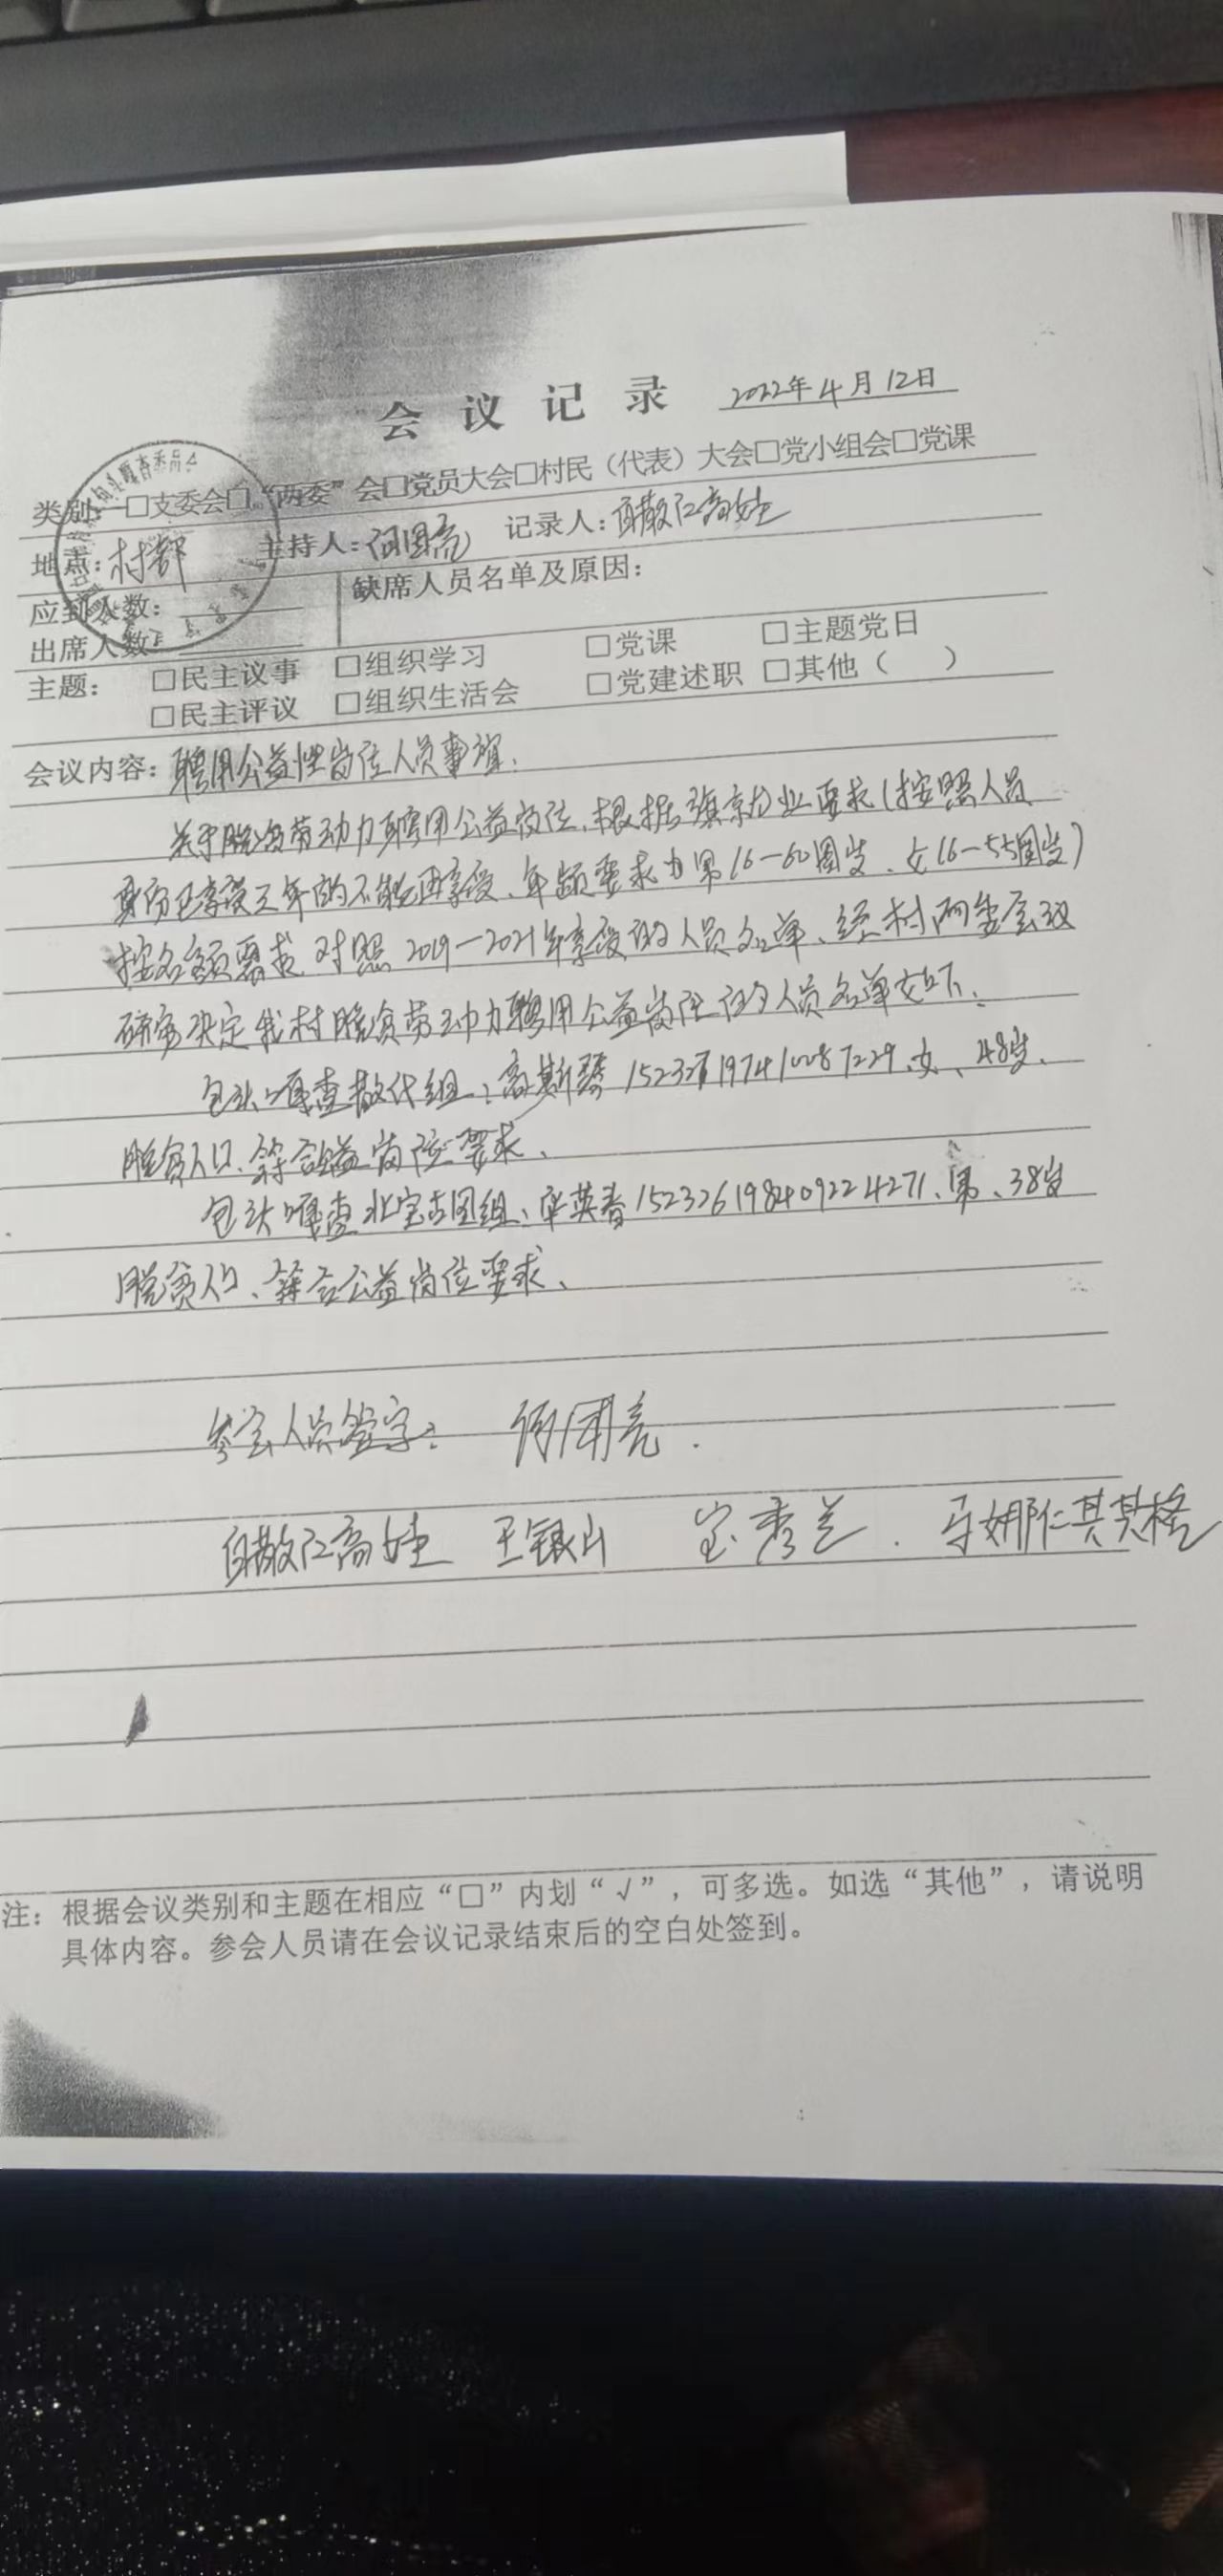 会议记录 2022年4月12日
类别:□支委会□“两委”会□党员大会□村民(代表)大会□党小组会□党课
地点:村部 主持人: 记录人:白散仁高娃
应到人数: 缺席人员名单及原因:
出席人数:
主题: □民主议事 □组织学习 □党课 □主题党日
□民主评议 □组织生活会 □党建述职 □其他( )
会议内容:聘用公益性岗位人员事宜.
关于脱贫劳动力聘用公益岗位,根据旗就业要求(按照人员
身份已享受三年的不能再享受、年龄要求为男16-60周岁、女16-55周岁)
按名额需求,对照2019-2021年享受的人员名单、经村两委会议
研究决定我村脱贫劳动力聘用公益岗位的人员名单如下:
包头嘎查散代组:高斯琴 女、48岁、
脱贫人口、符合公益岗位要求、
包头嘎查北宝古图组: 152326198409224271、男、38岁
脱贫人口、符合公益岗位要求、
参会人员签字: 何国亮.
白散仁高娃 王银山 宝秀兰. 马娜仁其其格
注:根据会议类别和主题在相应“□”内划“√”,可多选。如选“其他”,请说明
具体内容。参会人员请在会议记录结束后的空白处签到。